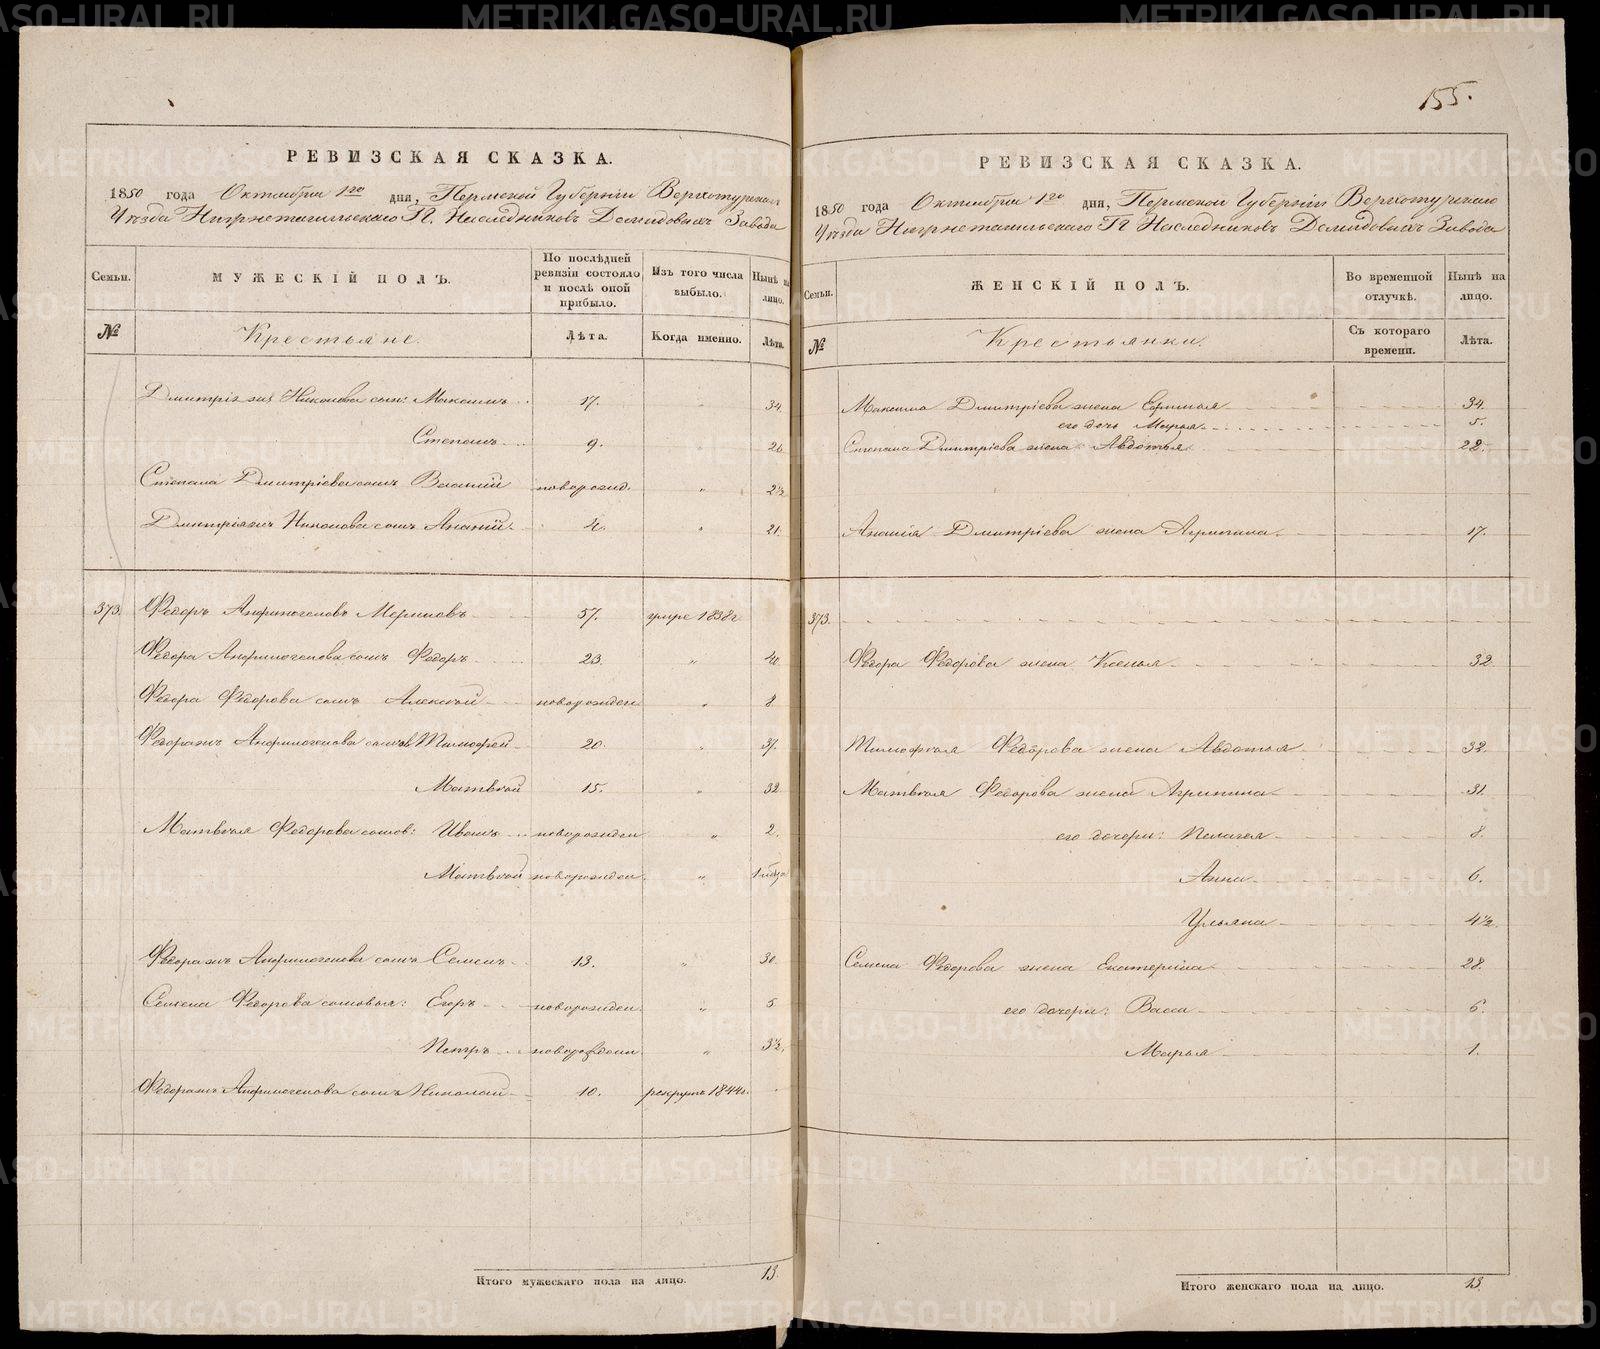 155.
РЕВИЗСКАЯ СКАЗКА.
1850 года Октября 1го дня, Пермской Губернiи Верхотурскаго
Уѣзда Нижнетагильскаго Г. Наследниковъ Демидовыхъ Завода
Семьи.
МУЖЕСКIЙ ПОЛЪ.
По послѣдней ревизiи состояло и послѣ оной прибыло.
Изъ того числа выбыло.
Нынѣ на лицо.
№
Крестьяне.
Лѣта.
Когда именно.
Лѣта.
Дмитрiя же Никонова сын: Максимъ 17. 34.
Степанъ 9. 26
Степана Дмитрiева сынъ Василiй новорожд. " 2½
Дмитрiя жъ Никонова сынъ Ананiй. 4. " 21.
373. Федоръ Анфиногеновъ 57. умре 1838г
Федора Анфиногенова сынъ Федоръ 23. " 40.
Федора Федорова сынъ Алексѣй новорожден " 8
Федора жъ Анфиногенова сынов Тимофей 20. " 37.
Матвѣй 15. " 32
Матвѣя Федорова сынов: Иванъ новорожден " 2.
Матвѣй новорожден. "
Федора жъ Анфиногенова сынъ Семенъ 13. " 30.
Семена Федорова сыновья: Егоръ новорожден. " 5
Петръ новорожден. " 3½
Федора жъ Анфиногенова сынъ Николай 10. рекрутъ 1844г.
Итого мужескаго пола на лицо. 13.
РЕВИЗСКАЯ СКАЗКА.
1850 года Октября 1го дня, Пермской Губернiи Верхотурскаго
Уѣзда Нижнетагильскаго Г Наследниковъ Демидовыхъ Завода
Семьи.
ЖЕНСКIЙ ПОЛЪ.
Во временной отлучкѣ.
Нынѣ на лицо.
№
Крестьянки.
Съ котораго времени.
Лѣта.
Максима Дмитрiева жена Ефимья 34.
его дочь Марья 5.
Степана Дмитрiева жена Авдотья 22.
Ананiя Дмитрiева жена Агрипина. 17.
373.
Федора Федорова жена Ксенья 32
Тимофѣя Федорова жена Авдотья 32.
Матвѣя Федорова жена Агрипина 31.
его дочери: Пелагея 8.
Анна 6.
Ульяна 4½
Семена Федорова жена Екатерина 28.
его дочери: Васса 6.
Марья 1.
Итого женскаго пола на лицо. 13
METRIKI.GASO-URAL.RU